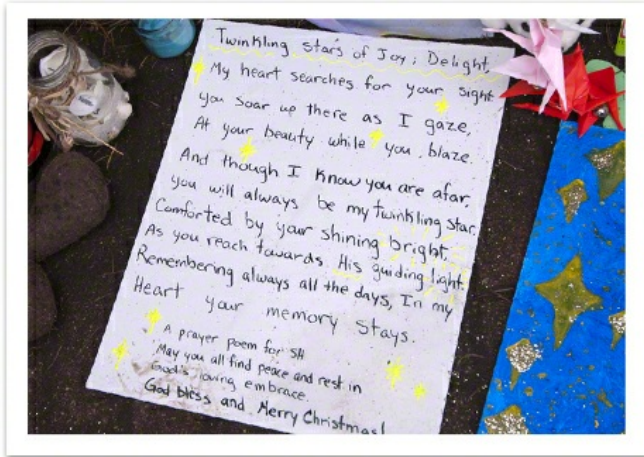 Twinkling stars of Joy ; Delight
My heart searches for your sight
you soar up there as I gaze,
At your beauty while you blaze.
And though I know you are afar,
you will always be my twinkling star.
Comforted by your shining bright,
As you reach towards His guiding light.
Remembering always all the days, In my
Heart your memory stays.
A prayer poem for SH
May you all find peace and rest in
God's loving embrace.
God bless and Merry Christmas!